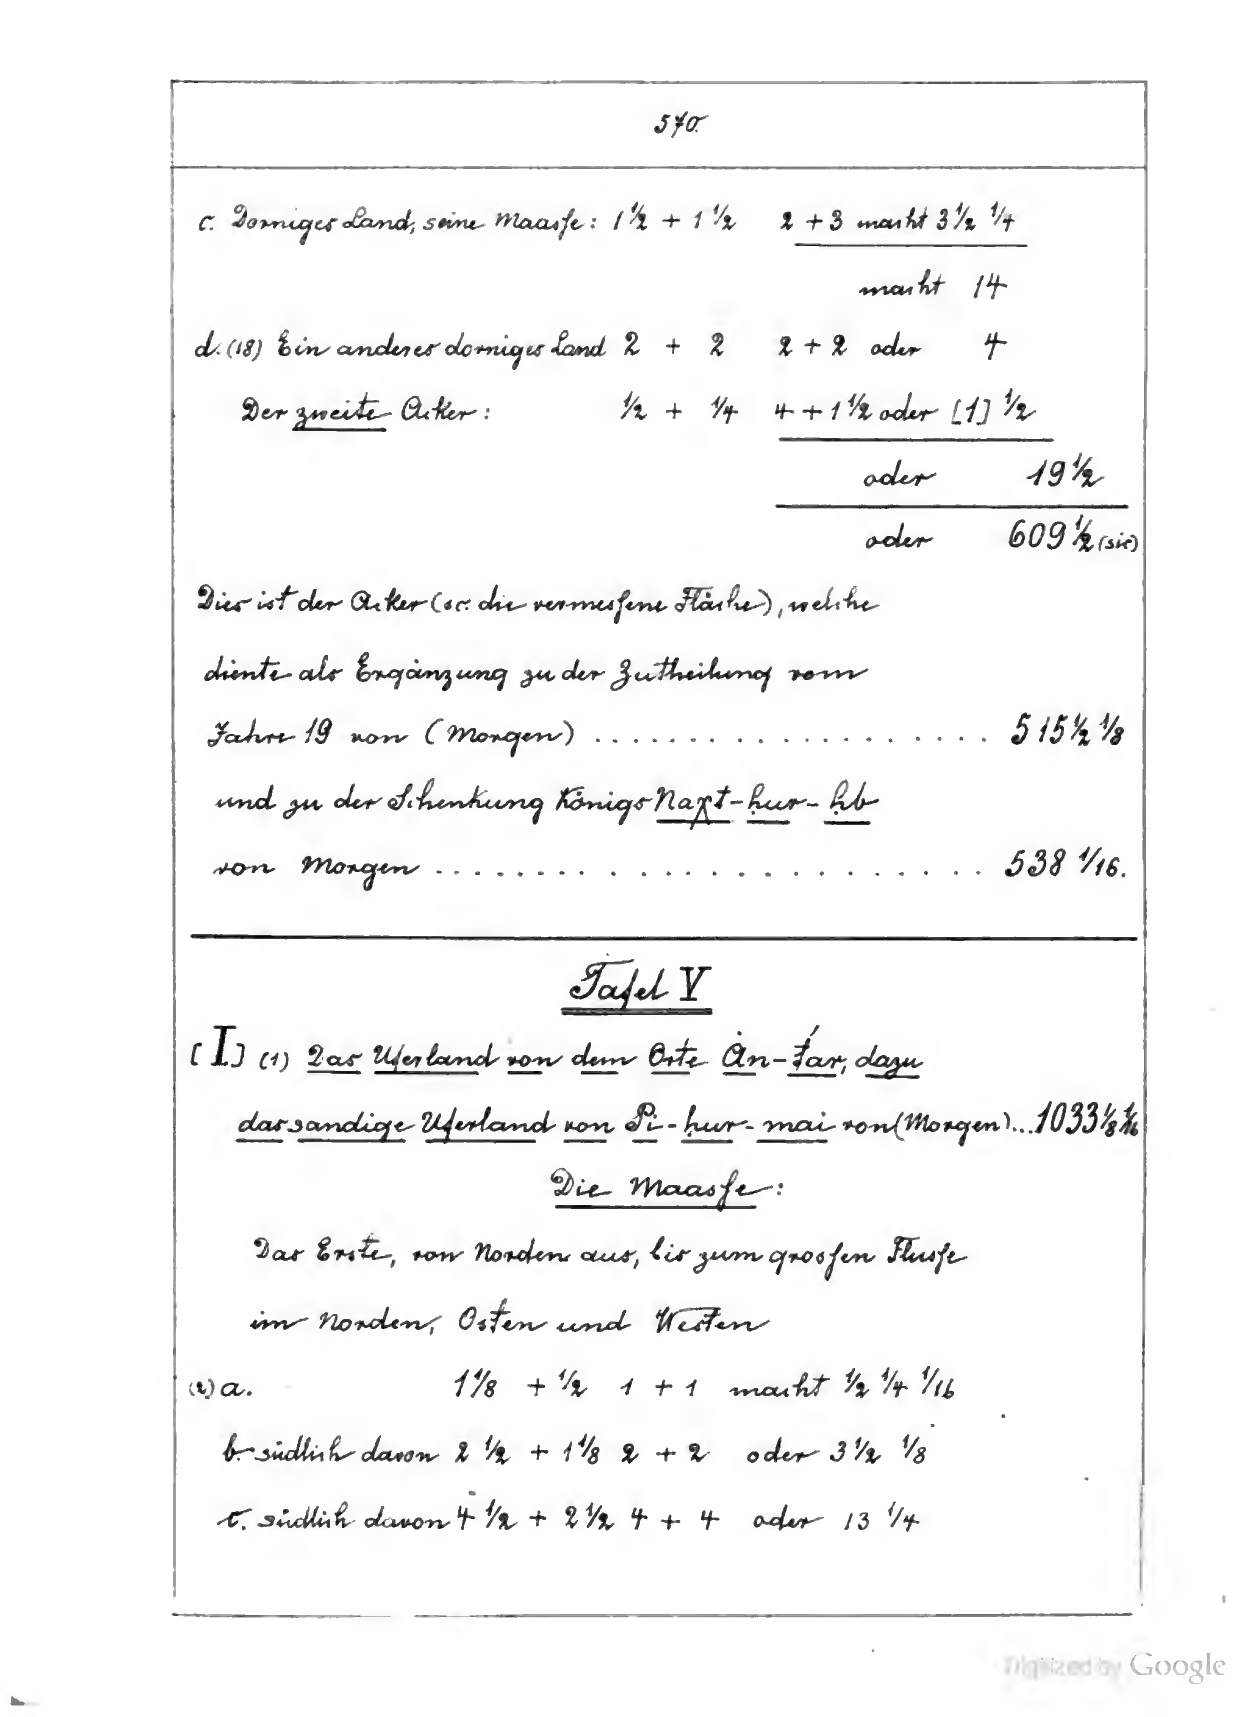 570.
c. Dorniges Land, seine Maasse: 1 1/2 + 1 1/2 2 + 3 macht 3 1/2 1/4
macht 14
d. (18) Ein anderes dorniges Land 2 + 2 2 + 2 oder 4
Der zweite Acker: 1/2 + 1/4 4 + 1 1/2 oder [1] 1/2
oder 19 1/2
oder 609 1/2 (sic)
Dies ist der Acker (sc. die vermessene Fläche), welche
diente als Ergänzung zu der Zutheilung vom
Jahre 19 von (Morgen) . . . . . . . . . . . . . . . . . . . 515 1/2 1/8
und zu der Schenkung Königs Naχt-ḥur-ḥb
von Morgen . . . . . . . . . . . . . . . . . . . . . . . . . . 538 1/16.
Tafel V
[I] (1) Das Uferland von dem Orte Ȧn-ṭar, dazu
das sandige Uferland von Pi-ḥur-mai von (Morgen) ... 1033 1/8 1/16
Die Maasse:
Das Erste, von Norden aus, bis zum grossen Flusse
im Norden, Osten und Westen
(2) a. 1 1/8 + 1/2 1 + 1 macht 1/2 1/4 1/16
b. südlich davon 2 1/2 + 1 1/8 2 + 2 oder 3 1/2 1/8
c. südlich davon 4 1/2 + 2 1/2 4 + 4 oder 13 1/4
Digitized by Google